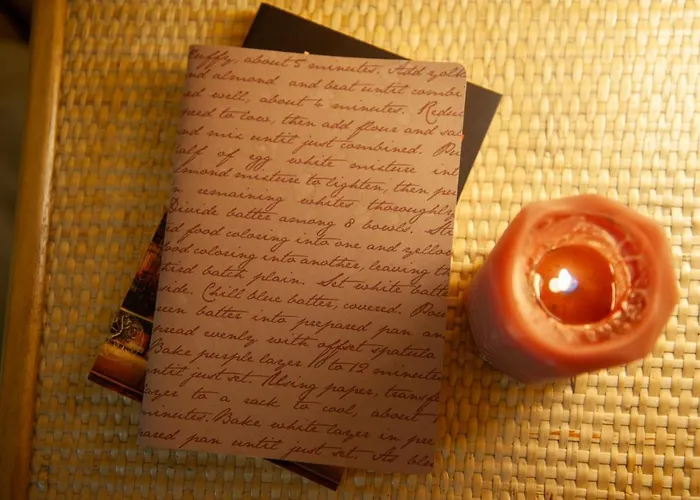 uffy, about 5 minutes. Add yolk
nd almond and beat until combi
ed well, about 4 minutes. Reduc
peed to low, then add flour and sal
nd mix until just combined. Pu
alf of egg white mixture int
lmond mixture to lighten, then pu
n remaining whites thoroughly
Divide batter among 8 bowls. Sti
d food coloring into one and yellow
ood coloring into another, leaving th
hird batch plain. Set white batte
side. Chill blue batter, covered. Pou
een batter into prepared pan an
pread evenly with offset spatula
Bake purple layer 10 to 12 minutes
ntil just set. Using paper, transfe
ayer to a rack to cool, about 1
minutes. Bake white layer in pre
ared pan until just set. As blu